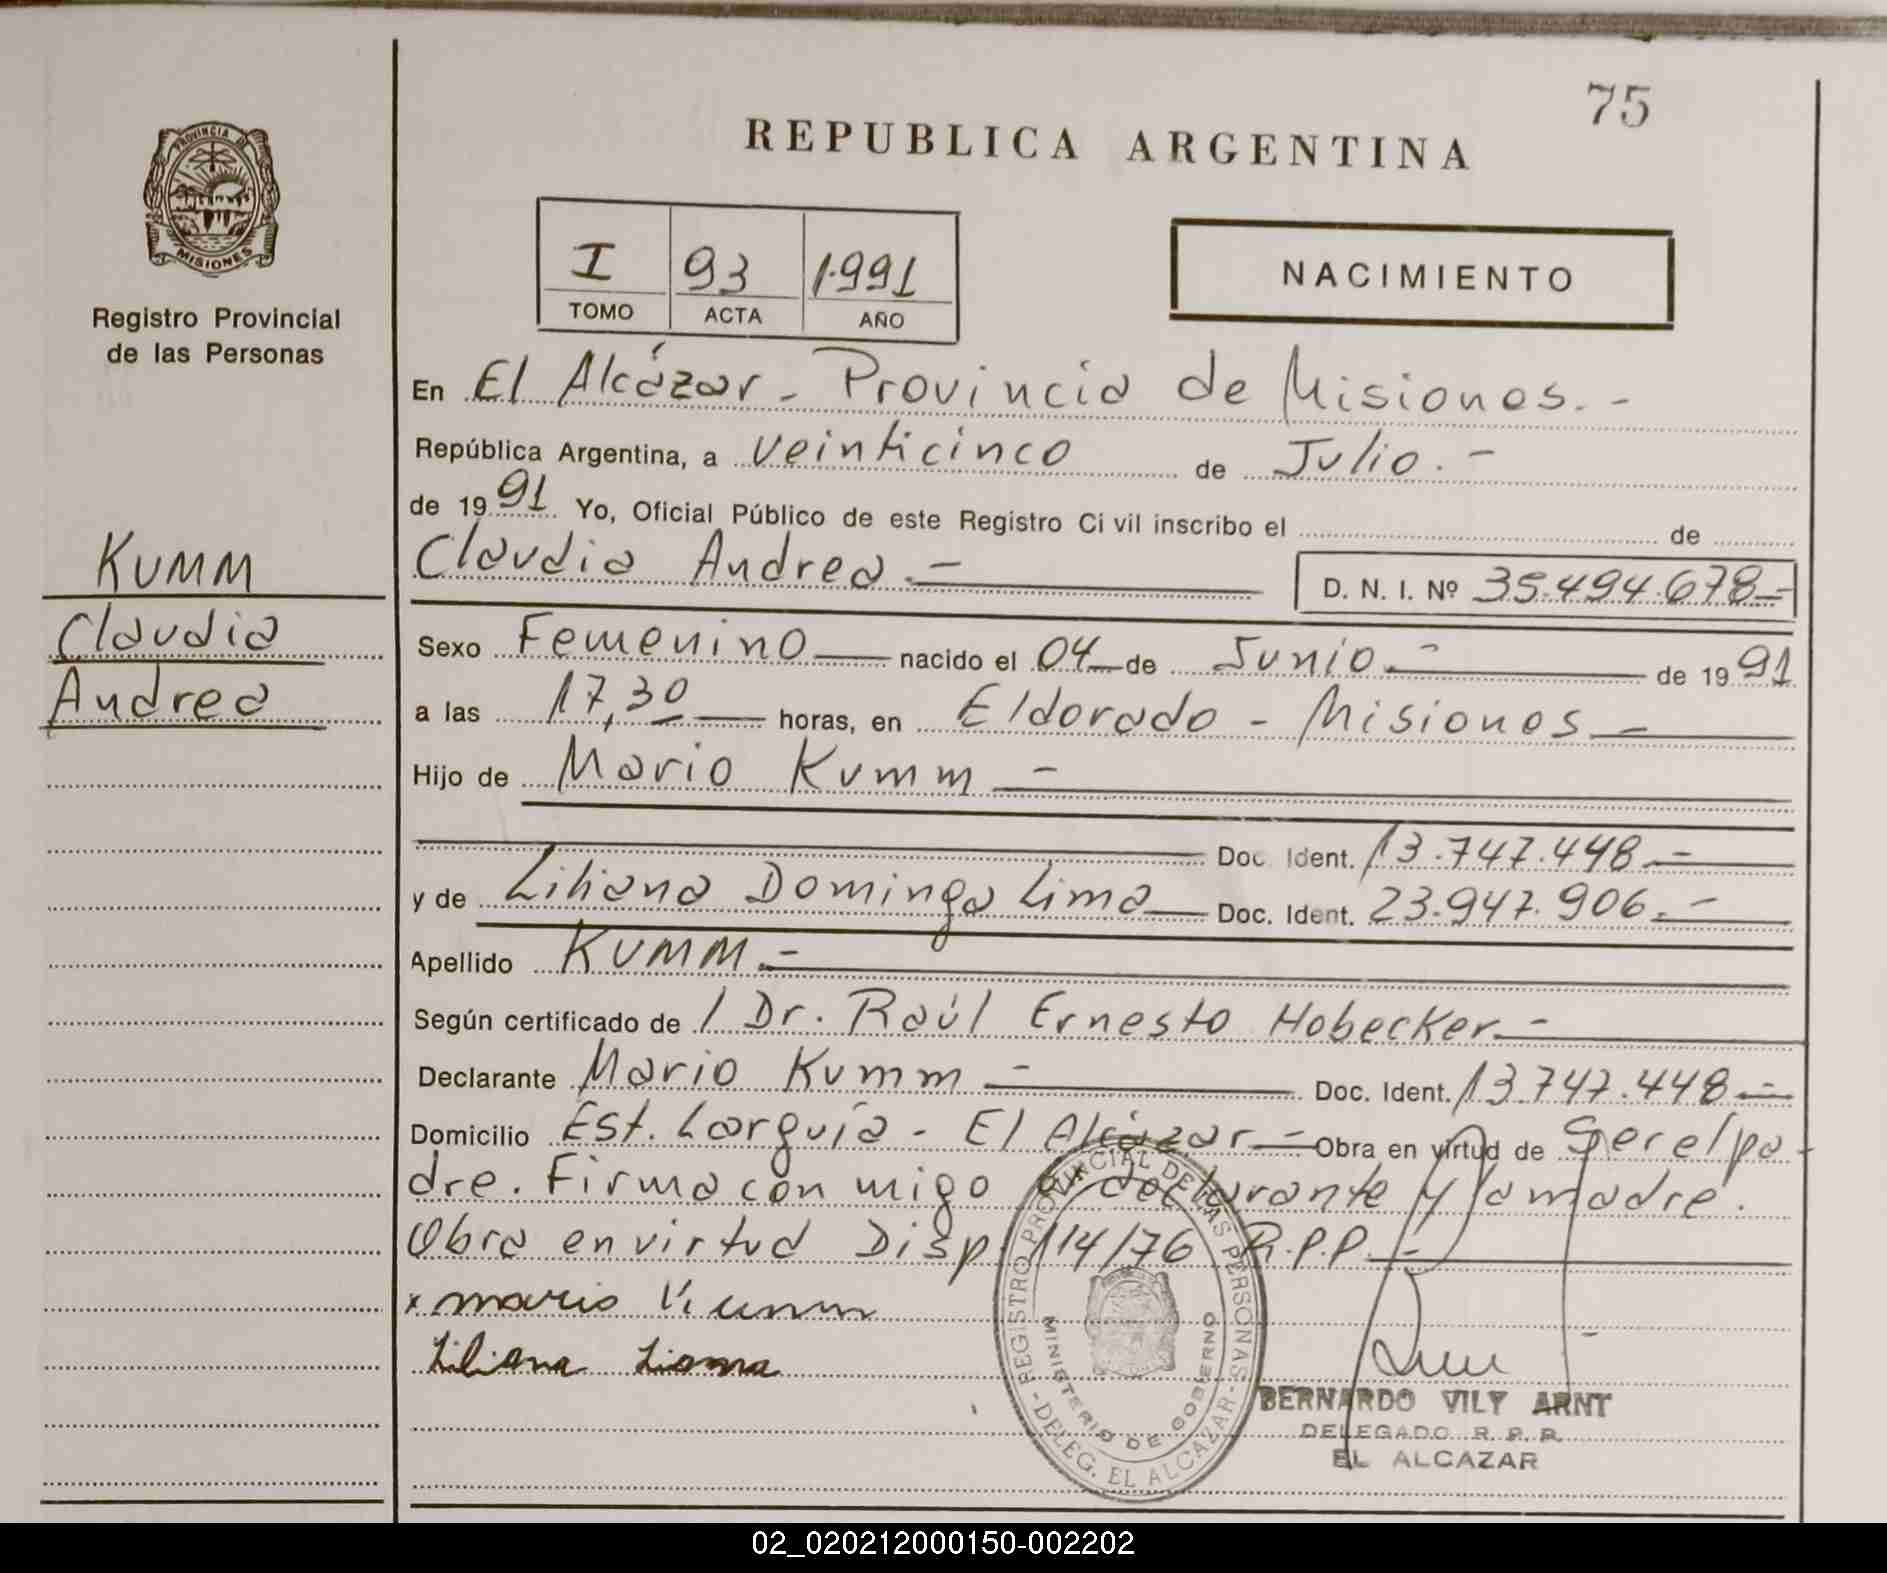 75
REPUBLICA ARGENTINA
PROVINCIA DE
MISIONES
Registro Provincial
de las Personas
I 93 1.991
TOMO ACTA AÑO
NACIMIENTO
En El Alcázar - Provincia de Misiones. -
República Argentina, a veinticinco de Julio. -
de 19 91 Yo, Oficial Público de este Registro Ci vil inscribo el de
Claudia Andrea. - D. N. I. Nº 35.494.678 -
KUMM
Claudia
Andrea
Sexo Femenino nacido el 04 de Junio. - de 19 91
a las 17,30 horas, en Eldorado - Misiones -
Hijo de Mario Kumm -
Doc. Ident. 13.747.448. -
y de Liliana Dominga Lima Doc. Ident. 23.947.906. -
Apellido KUMM. -
Según certificado de / Dr. Raúl Ernesto Hobecker. -
Declarante Mario Kumm - Doc. Ident. 13.747.448 -
Domicilio Est. Larguía - El Alcázar - Obra en virtud de Ser el pa-
dre. Firma con migo el declarante y la madre.
Obra en virtud Disp. 114/76 R.P.P. -
x mario Kumm
Liliana Lioma
REGISTRO PROVINCIAL DE LAS PERSONAS - DELEG. EL ALCAZAR -
MINISTERIO DE GOBIERNO
BERNARDO VILY ARNT
DELEGADO R. P. P.
EL ALCAZAR
02_020212000150-002202